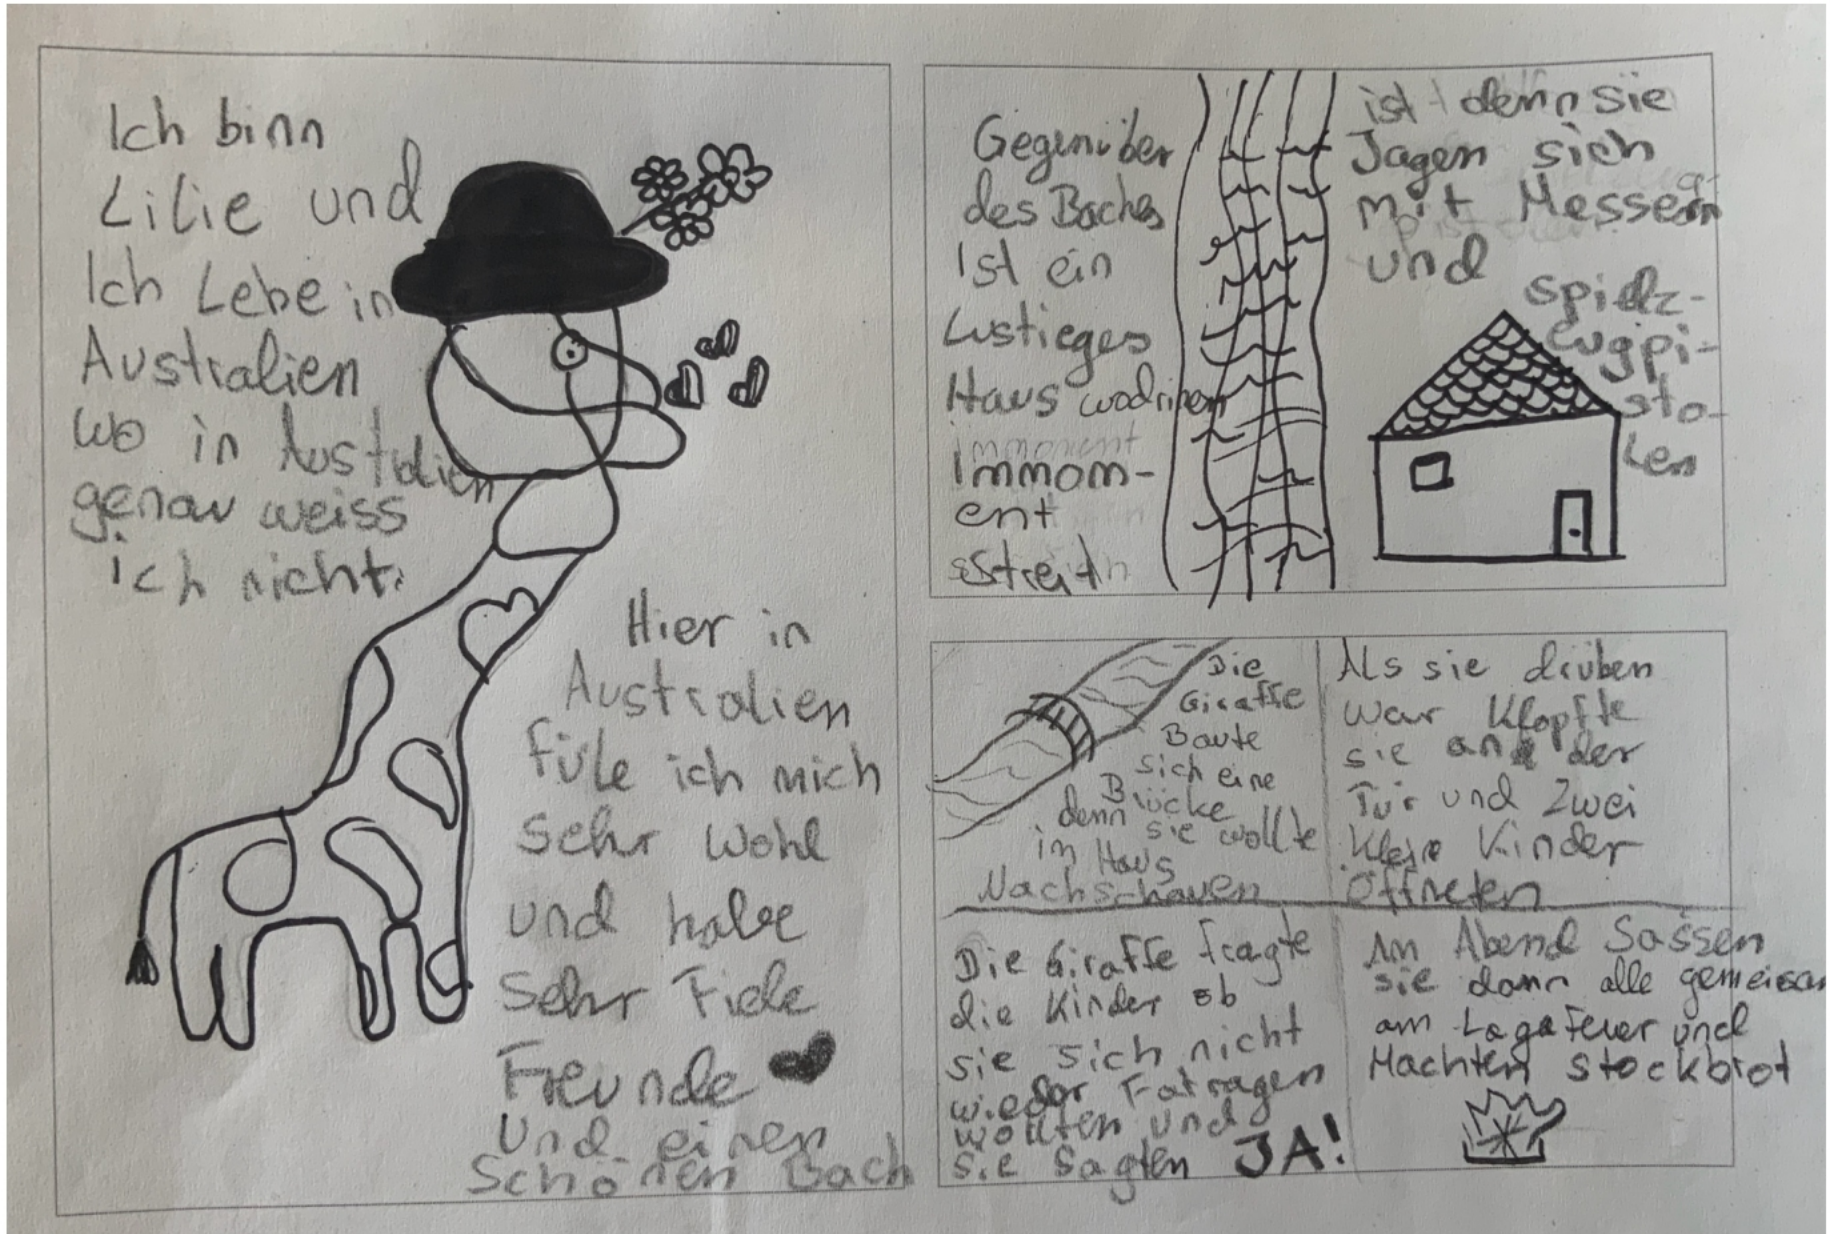 Ich binn
Lilie und
Ich Lebe in
Australien
wo in Australien
genau weiss
ich nicht.
Hier in
Australien
füle ich mich
sehr wohl
und habe
sehr Fiele
Freunde
Und einen
Schönen Bach
Gegenüber
des Baches
Ist ein
Lustieges
Haus wodrinen
Immom-
ent
Streit
ist denn sie
Jagen sich
mit Messern
und
spielz-
eugpi-
sto-
len
Die
Giraffe
Baute
sich eine
Brücke
denn sie wollte
im Haus
Nachschauen
Als sie drüben
war Klopfte
sie an der
Tür und Zwei
Kleine Kinder
Öffneten
Die Giraffe fragte
die Kinder ob
sie sich nicht
wieder Fatragen
wollten und
sie sagten JA!
Am Abend Sassen
sie dann alle gemeisam
am Lagafeuer und
Machten stockbrot